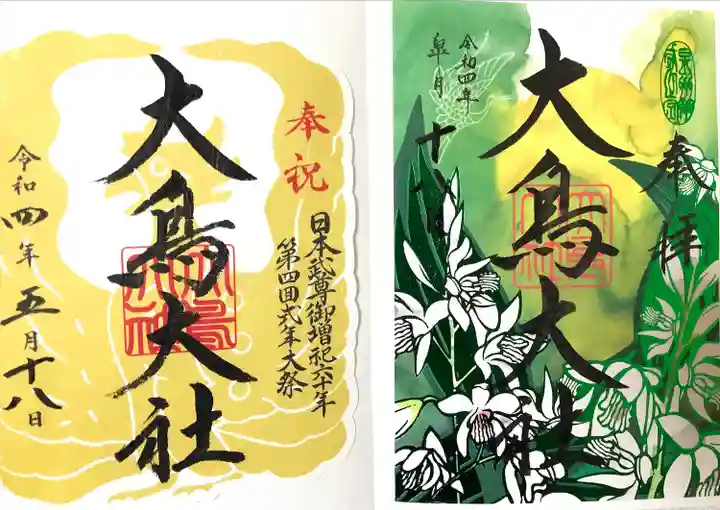 奉祝
日本武尊御増祀六十年
第四回式年大祭
大鳥大社
令和四年五月十八日
奉拝
大鳥大社
令和四年
皐月
十八日